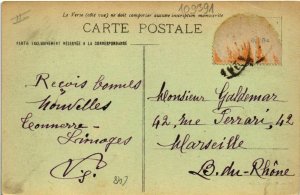 109391
Le Verso (côté vue) ne doit comporter aucune inscription manuscrite
CARTE POSTALE
PARTIE EXCLUSIVEMENT RÉSERVÉE A LA CORRESPONDANCE
Reçois bonnes
Nouvelles
Tonnerre
Limoges
Monsieur Galdemar
42, rue Ferrari, 42
Marseille
B.-du-Rhône